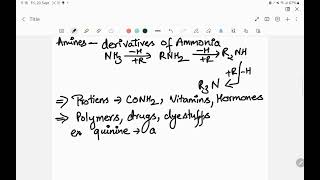 Amines - derivatives of Ammonia
NH3 -H +R → RNH2 -H +R → R2NH
+R -H
R3N
⇒ Protiens → CONH2, Vitamins, Hormones
⇒ Polymers, drugs, dyestuffs
ex quinine → a